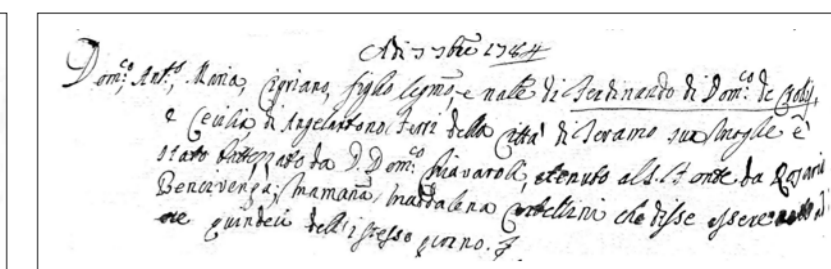 Adi 7 7bre 1784
Dom:co Ant:o Maria, Cipriano, figlio legmo, e nat:le di Ferdinando di Dom:co de
e Cecilia di Angelantonio Furri della Città di Teramo sua Moglie è
stato battezzato da D. Dom:co Chiavaroli, e tenuto al S. Fonte da Rosaria
Bencivenga; Mamana, Maddalena che disse essere nato ad
ore quindeci dell'istesso giorno.